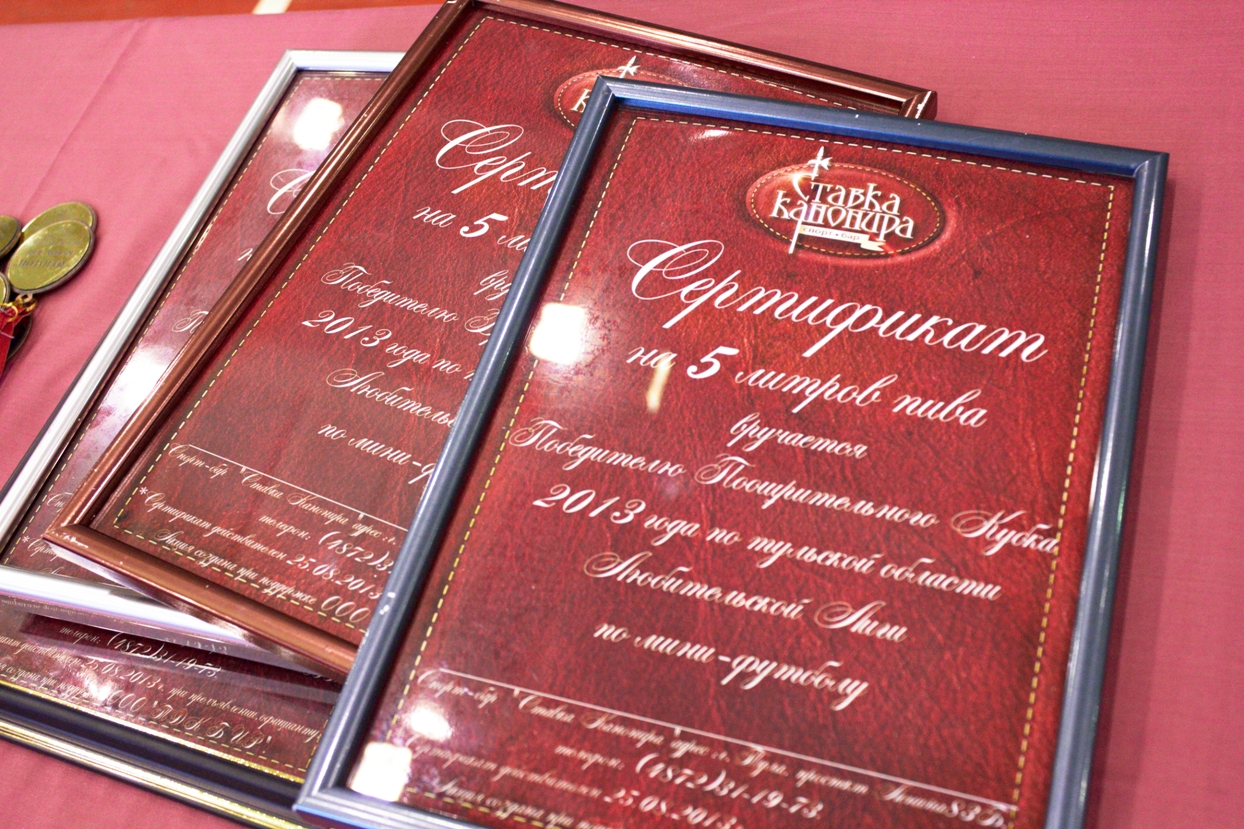 Ставка
канонира
спорт • бар
Сертификат
на 5 литров пива
вручается
Победителю Поощрительного Кубка
2013 года по тульской области
Любительской Лиги
по мини-футболу
Спорт-бар "Ставка Канонира" адрес: г. Тула, проспект Ленина 83Б
телефон: (4872)31-19-73
Сертификат действителен 25.08.2013
Акция создана при
Серт
на 5 ли
вру
Победителю
2013 года по
Любительс
по мини-ф
Спорт-бар "Ставка Канонира" адрес: г.
телефон: (4872)3
*Сертификат действителен 25.08.2013
Акция создана при поддержке ООО
С
телефон: (4872)31-19-73
25.08.2013г. при предъявлении